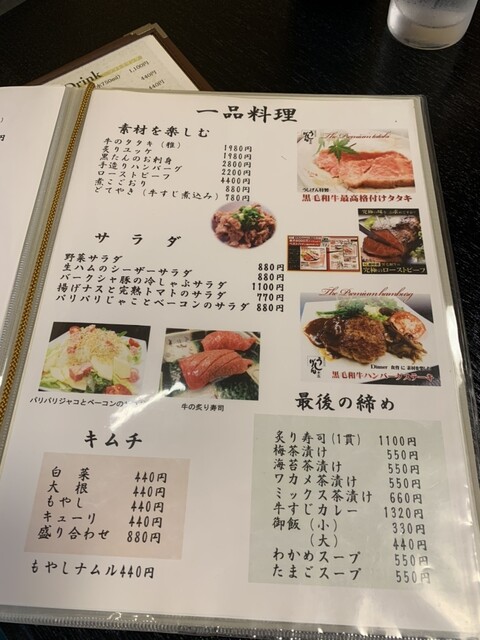 Drink
1,100円
440円
440円
一品料理
素材を楽しむ
牛のタタキ(雅) 1980円
炙りユッケ 1980円
黒たんのお刺身 2800円
手造りハンバーグ 2200円
ローストビーフ 4400円
煮こごおり 880円
どてやき(牛すじ煮込み) 780円
The Premium tataki
黒毛和牛最高格付けタタキ
究極のローストビーフ
サラダ
野菜サラダ 880円
生ハムのシーザーサラダ 880円
バークシャ豚の冷しゃぶサラダ 1100円
揚げナスと完熟トマトのサラダ 770円
パリパリじゃことベーコンのサラダ 880円
The Premium hamburg
Dinner
黒毛和牛ハンバーグステーキ
パリパリジャコとベーコンの
牛の炙り寿司
キムチ
白菜 440円
大根 440円
もやし 440円
キューリ 440円
盛り合わせ 880円
もやしナムル440円
最後の締め
炙り寿司(1貫) 1100円
梅茶漬け 550円
海苔茶漬け 550円
ワカメ茶漬け 550円
ミックス茶漬け 660円
牛すじカレー 1320円
御飯(小) 330円
(大) 440円
わかめスープ 550円
たまごスープ 550円